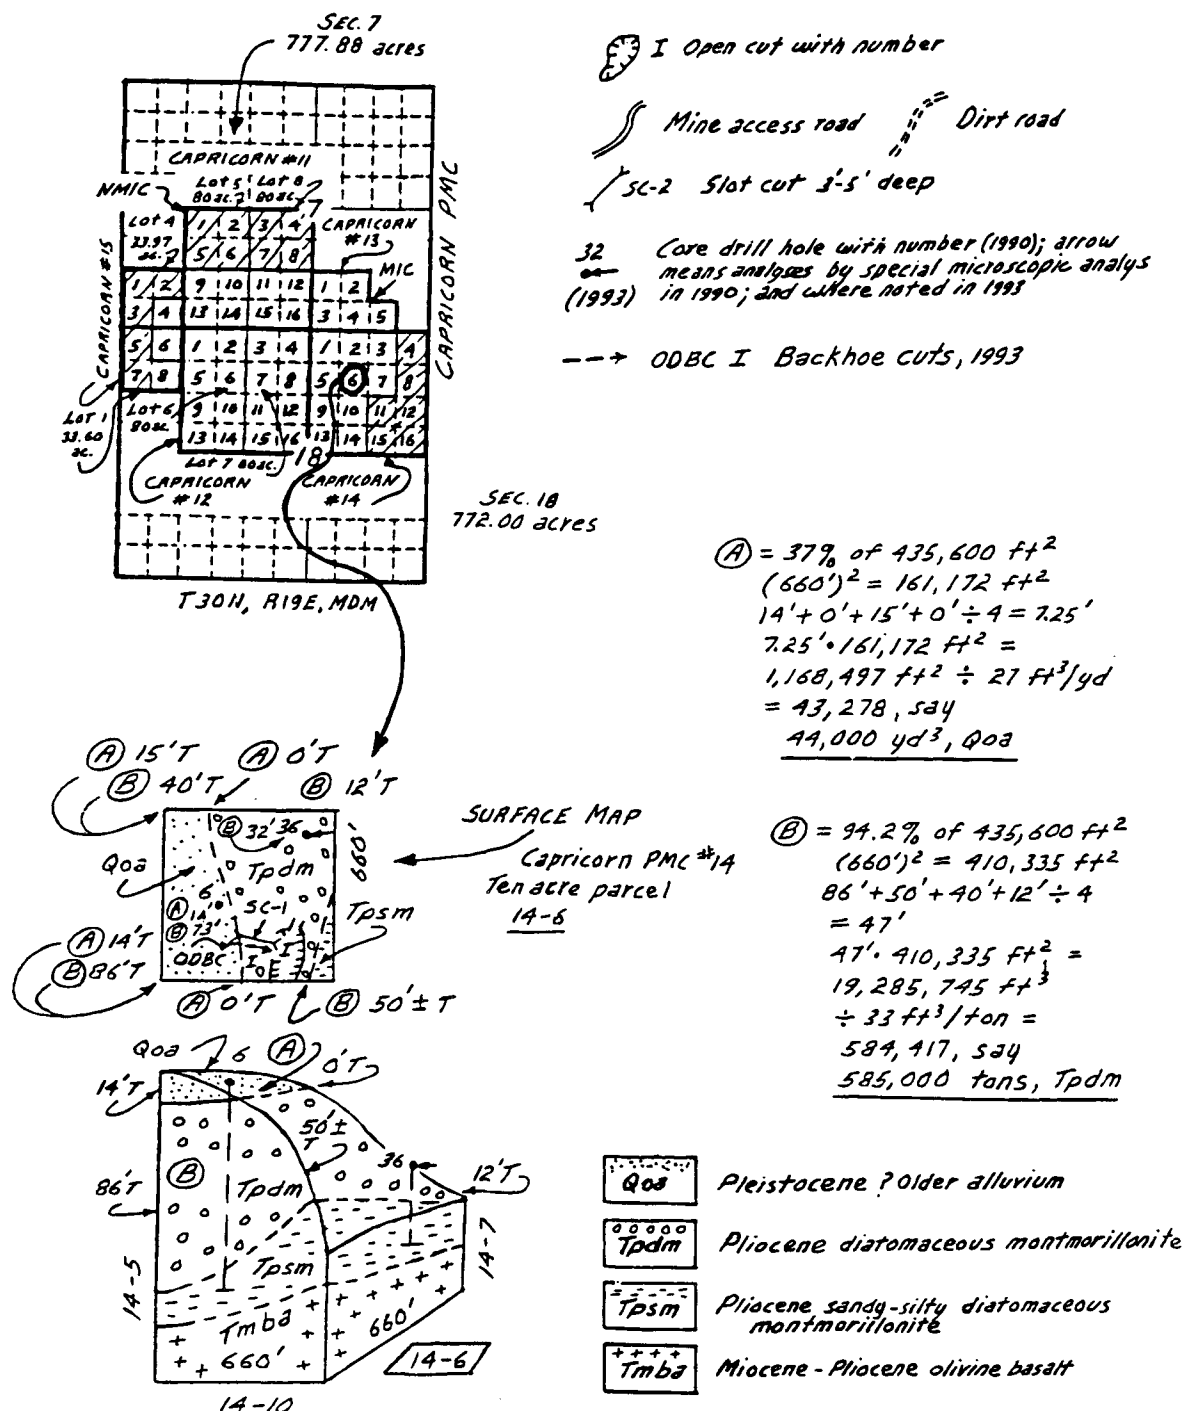 SEC. 7
777.88 acres
CAPRICORN #11
Lot 5 Lot 8
80ac. 80ac.
NMIC
Lot 4
33.97
ac.
CAPRICORN
#13
MIC
CAPRICORN #15
CAPRICORN PMC
1 2 3 4
5 6 7 8
1 2 9 10 11 12 1 2
3 4 13 14 15 16 3 4 5
5 6 1 2 3 4 1 2 3 4
7 8 5 6 7 8 5 6 7 8
9 10 11 12 9 10 11 12
13 14 15 16 13 14 15 16
Lot 1
33.60
ac.
Lot 6
80ac.
Lot 7 80ac.
18
CAPRICORN
#12
CAPRICORN
#14
SEC. 18
772.00 acres
T30N, R19E, MDM
I Open cut with number
Mine access road
Dirt road
SC-2 Slot cut 3'-5' deep
32 Core drill hole with number (1990); arrow
means analyses by special microscopic analys
(1993) in 1990; and where noted in 1993
ODBC I Backhoe cuts, 1993
A = 37% of 435,600 ft²
(660')² = 161,172 ft²
14'+0'+15'+0'÷4 = 7.25'
7.25'·161,172 ft² =
1,168,497 ft² ÷ 27 ft³/yd
= 43,278, say
44,000 yd³, Qoa
B = 94.2% of 435,600 ft²
(660')² = 410,335 ft²
86'+50'+40'+12'÷4
= 47'
47'· 410,335 ft² =
19,285,745 ft³
÷ 33 ft³/ton =
584,417, say
585,000 tons, Tpdm
A 15'T
A 0'T
B 40'T
B 12'T
B 32' 36
Qoa
Tpdm
660'
6
A 14'
SC-1
B 73'
Tpsm
ODBC
I
I
E
A 14'T
B 86'T
A 0'T
B 50'± T
SURFACE MAP
Capricorn PMC #14
Ten acre parcel
14-6
Qoa 6 A 0'T
14'T
50'±
T
36
12'T
86'T
B
Tpdm
Tpsm
14-5
14-7
Tmba
660'
660'
14-6
14-10
Qoa Pleistocene ? Older alluvium
Tpdm Pliocene diatomaceous montmorillonite
Tpsm Pliocene sandy-silty diatomaceous
montmorillonite
Tmba Miocene - Pliocene olivine basalt